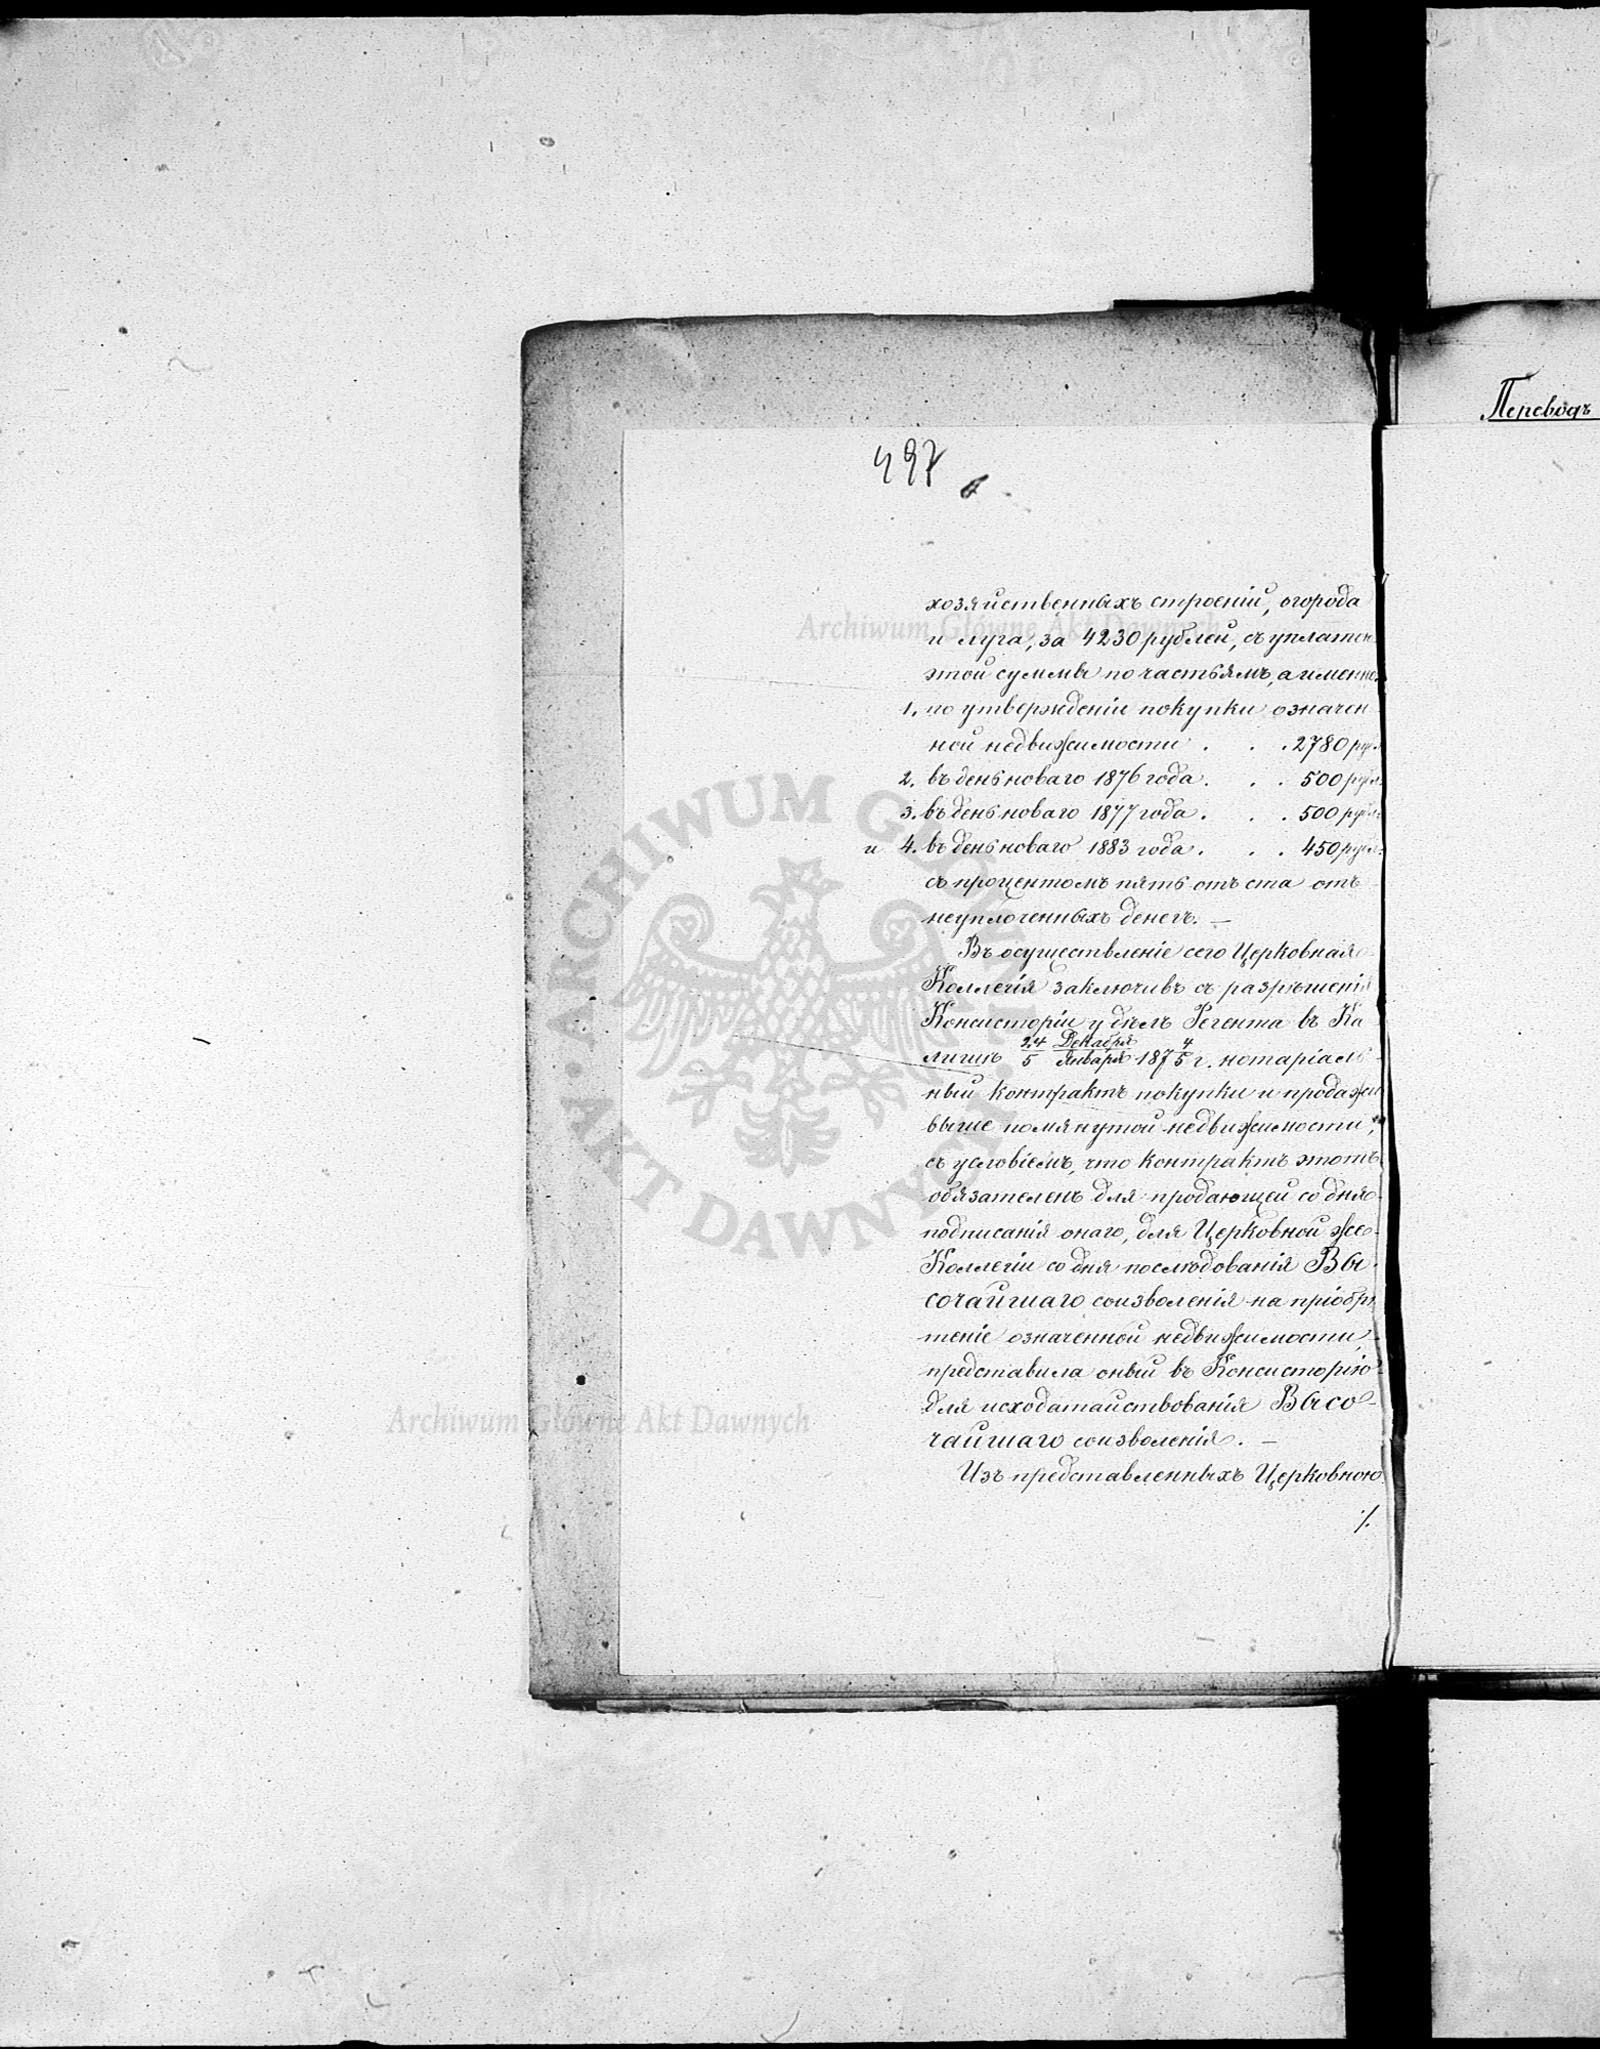 497
хозяйственныхъ строеній, огорода
и луга, за 4230 рублей, съ уплатою
этой суммы по частямъ, а именно:
1. по утвержденіи покупки означен
ной недвижимости . . . 2780 рубл.
2. въ день новаго 1876 года . . . 500 рубл.
3. въ день новаго 1877 года . . . 500 рубл.
и 4. въ день новаго 1883 года . . . 450 рубл.
съ процентомъ пять отъ ста отъ
неуплоченныхъ денегъ. —
Въ осуществленіе сего Церковная
Коллегія заключивъ съ разрѣшенія
Консисторіи у дѣлъ Регента въ Ка
лишѣ 24 Декабря / 5 Января 187 4/5 г. нотаріаль-
ный контрактъ покупки и продажи
выше помянутой недвижимости,
съ условіемъ, что контрактъ этотъ
обязателенъ для продающей со дня
подписанія онаго, для Церковной же
Коллегіи со дня послѣдованія Вы-
сочайшаго соизволенія на пріобрѣ
теніе означенной недвижимости,
представила оный въ Консисторію
для исходатайствованія Высо-
чайшаго соизволенія. —
Изъ представленныхъ Церковною
./.
Переводъ
Archiwum Główne Akt Dawnych
ARCHIWUM GŁÓWNE AKT DAWNYCH
Archiwum Główne Akt Dawnych